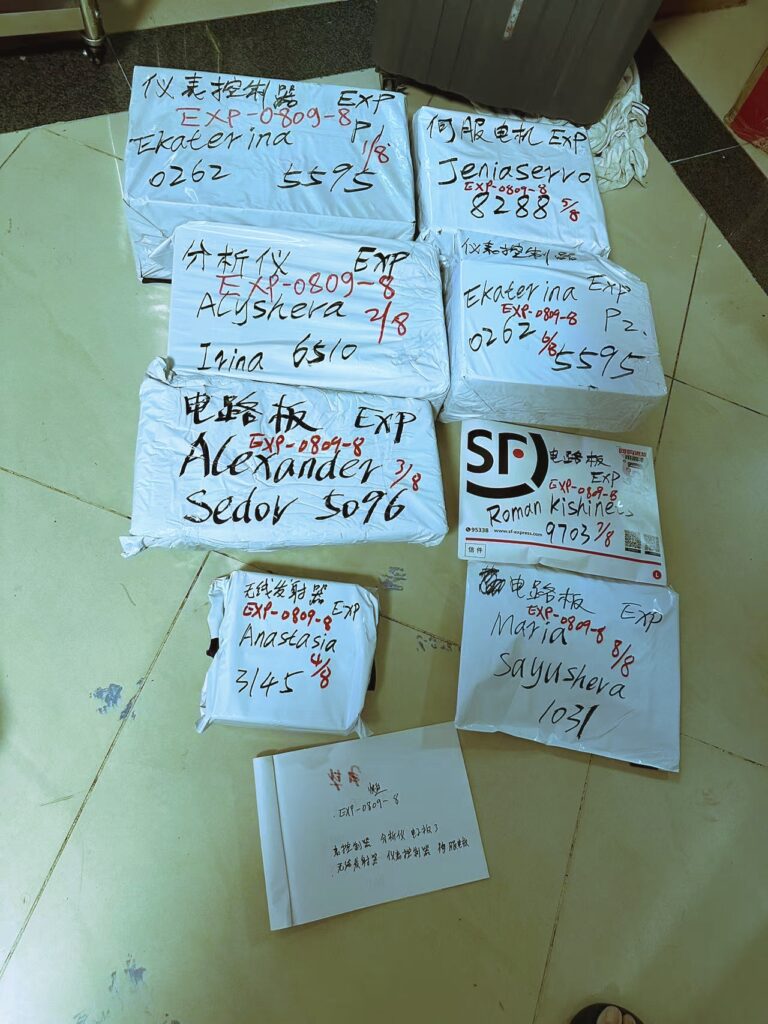 仪表控制器 EXP
EXP-0809-8
Ekaterina P1
1/8
0262 5595
伺服电机 EXP
Jeniaservo
EXP-0809-8
8288 5/8
分析仪 EXP
EXP-0809-8
Alyshera 2/8
Irina 6510
仪表控制器
Ekaterina EXP
EXP-0809-8 P2.
0262 6/8 5595
电路板 EXP
EXP-0809-8
Alexander 3/8
Sedov 5096
SF
电路板
EXP
EXP-0809-8
Roman Kishine
9703 7/8
95338 www.sf-express.com
信件
无线发射器
EXP-0809-8 EXP
Anastasia
4/8
3145
电路板 EXP
EXP-0809-8
Maria 8/8
Sayushera
1031
EXP-0809-8
表控制器 分析仪
无线发射器 仪表控制器 伺服电机